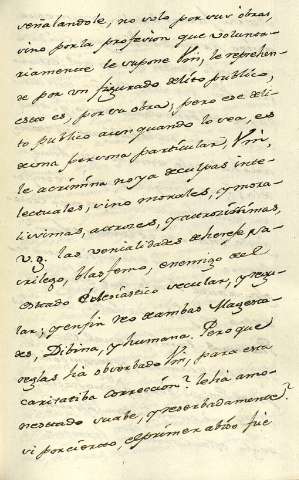 señalandole, no solo por sus obras,
sino por la profesion que volunta-
riamente le supone Vm, le reprehen-
de por un figurado delito publico,
esto es, por su obra; pero ese deli-
to publico aun quando lo sea, es
de una persona particular, Vm,
le acrimina no ya de culpas inte-
lectuales, sino morales, y mora-
lissimas, atrozes, y atrozissimas,
v.g. las venialidades de herege sa-
crilego, blasfemo, enemigo del
estado Eclesiastico secular, y regu-
lar, y en fin reo de ambas Magesta-
des, Dibina, y humana. Pero que
reglas há observado Vm, para esta
caritatiba correccion? le há amo-
nestado suabe, y reserbadamente?
si por cierto, el primer abiso fué